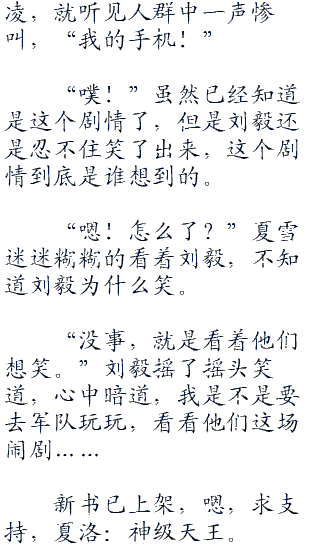 凌，就听见人群中一声惨
叫，“我的手机！”
“噗！”虽然已经知道
是这个剧情了，但是刘毅还
是忍不住笑了出来，这个剧
情到底是谁想到的。
“嗯！怎么了？”夏雪
迷迷糊糊的看着刘毅，不知
道刘毅为什么笑。
“没事，就是看着他们
想笑。”刘毅摇了摇头笑
道，心中暗道，我是不是要
去军队玩玩，看看他们这场
闹剧……
新书已上架，嗯，求支
持，夏洛：神级天王。